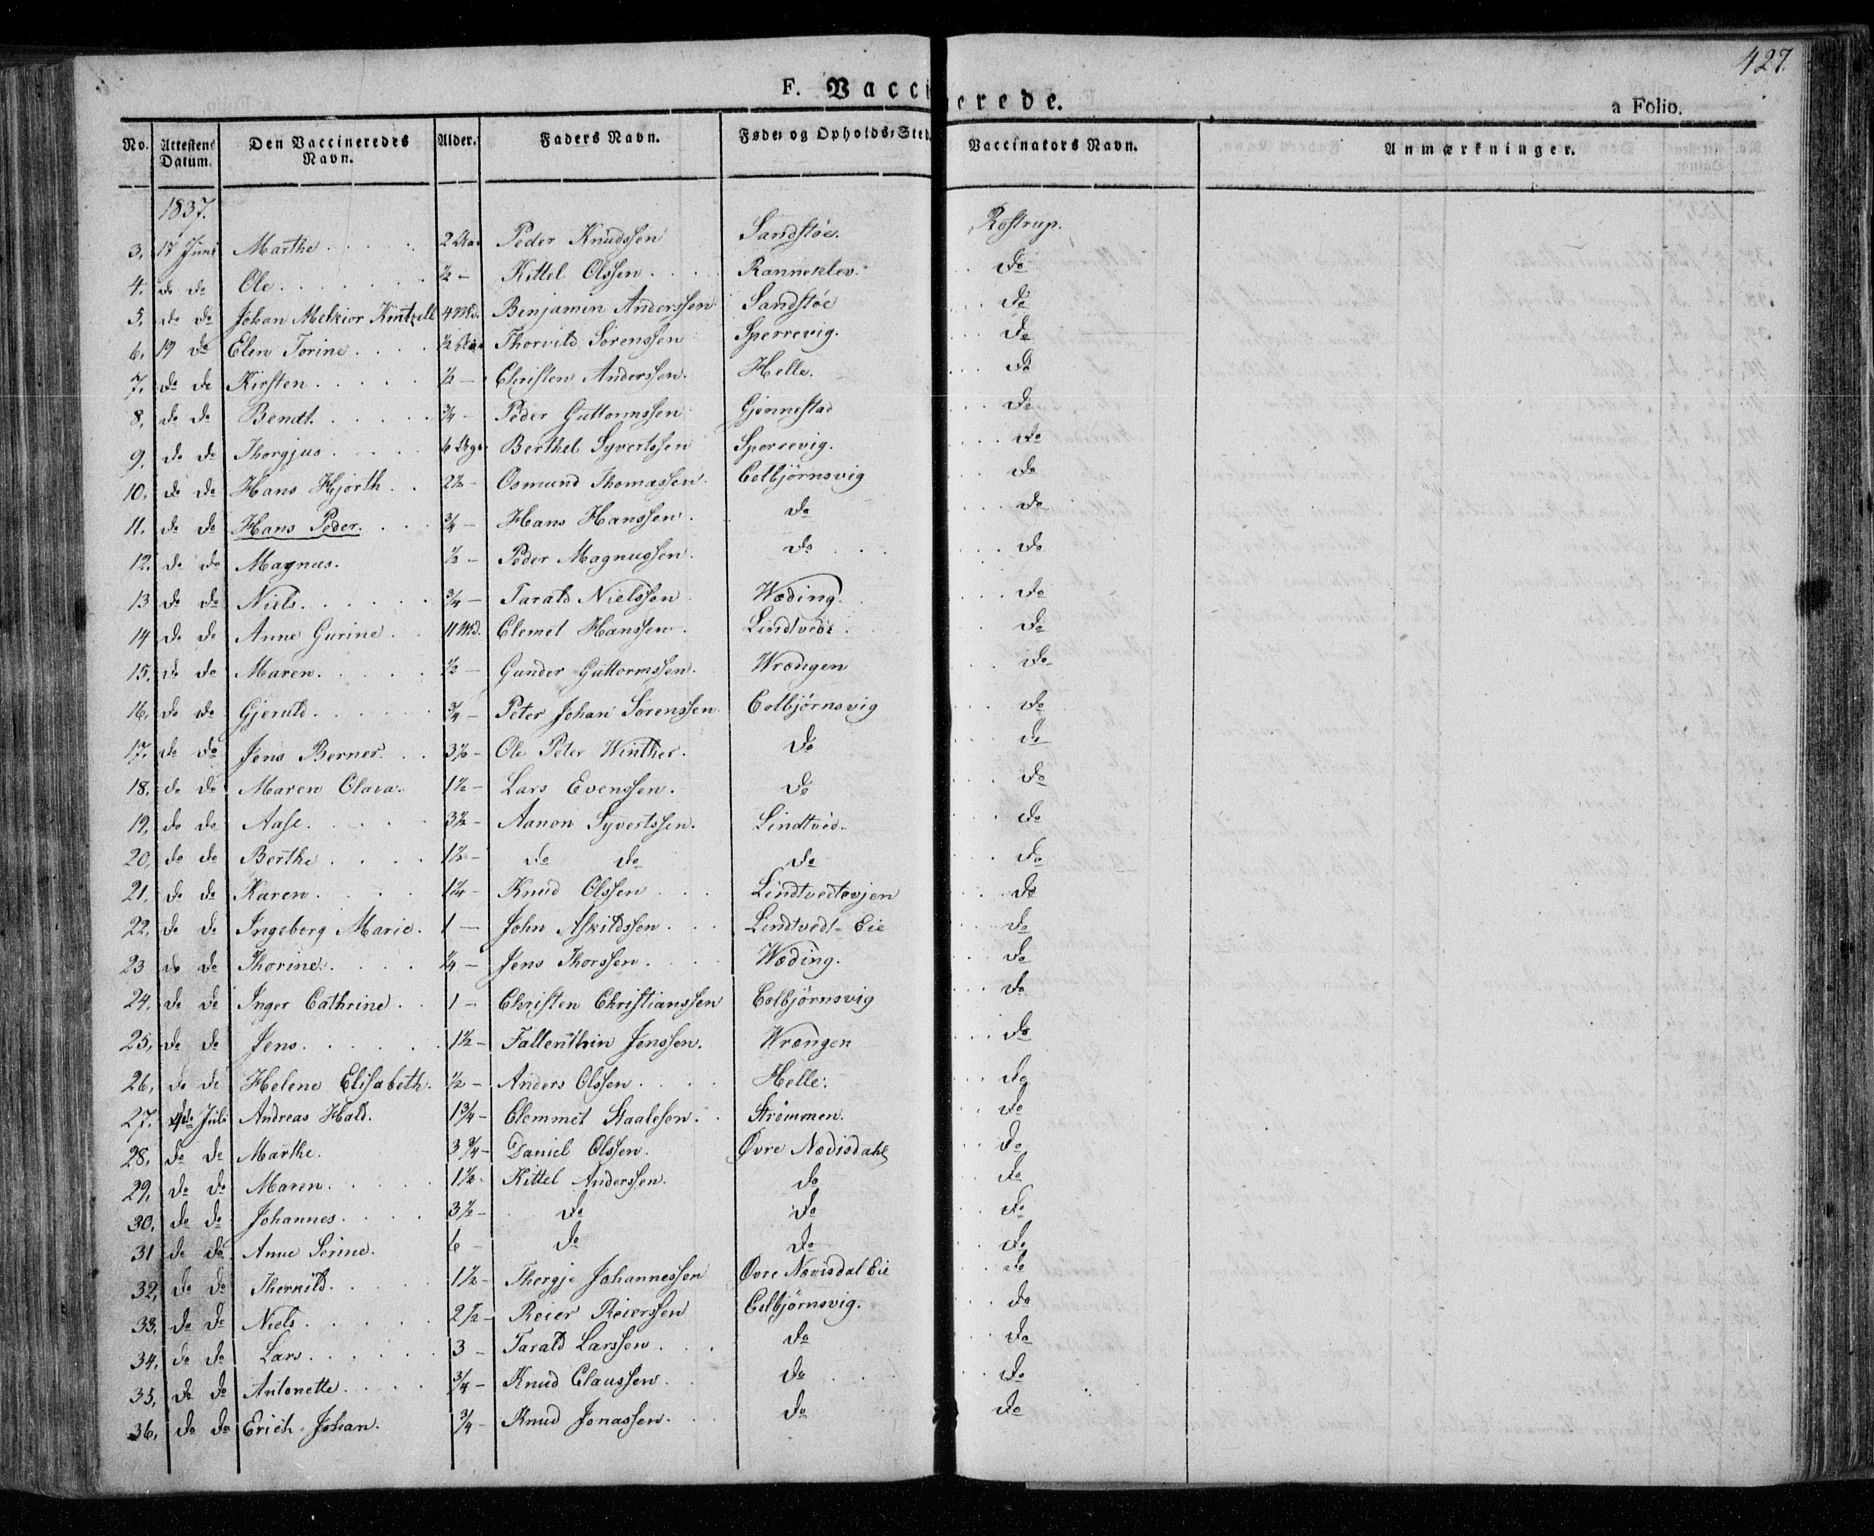 427.
F. Vaccinerede.
a Folio.
No. Attestens Datum. Den Vaccineredes Navn. Alder. Faders Navn. Føde- og Opholds-Sted. Vaccinators Navn. Anmærkninger.
1837.
3. 17 Juni Marthe 2 Peder Knudssen Sandstøe. Rostrup.
4. do do Ole ½ - Kittel Olssen Ranneklev. do
5. do do Johan Melkior Kintzell 4 Md. Benjamin Anderssen Sandstøe do
6. 19 do Elen Torine ½ Thorvild Sørenssen Sperrevig. do
7. do do Kirsten ½ - Christen Anderssen. Helle. do
8. do do Bendt ¾ - Peder Guttormssen Gjennestad do
9. do do Thorgjus 6 Berthel Syvertssen Sperrevig. do
10. do do Hans Hjorth 2½ - Osmund Thomassen Colbjørnsvig do
11. do do Hans Peder. ¾ - Hans Hanssen. do do
12. do do Magnus. ½ - Peder Magnussen do do
13 do do Niels ¾ - Tarald Nielssen Wæding. do
14 do do Anne Gurine 11 Md. Clemet Hanssen. Lindtvedt do
15. do do Maren. ½ - Gunder Guttormssen. Wrengen do
16. do do Gjeruld ¾ - Peter Johan Sørenssen Colbjørnsvig do
17. do do Jens Berner 3½ - Ole Peter Winther. do do
18. do do Maren Olava. 1½ - Lars Evenssen. do do
19. do do Aase. 3½ - Aanon Syvertssen. Lindtved do
20. do do Berthe 1½ - do do do do
21. do do Karen 1¼ - Knud Olssen Lindtvedtevjen do
22. do do Ingeborg Marie. 1 - John Askildssen Lindtvedt-Eie do
23 do do Thorine ¼ - Jens Thorssen Wæding. do
24. do do Inger Cathrine 1 - Christen Christianssen Colbjørnsvig do
25. do do Jens 1½ - Fallenthin Jenssen. Wrengen do
26. do do Helene Elisabeth. ½ - Anders Olssen Helle. do
27. Juli Andreas Hald. 1¾ - Clemmet Staalesen. Strømmen. do
28. do do Marthe. 3¾ - Daniel Olssen. Øvre Nædisdahl do
29. do do Maren 1½ - Kittel Anderssen. do do
30. do do Johannes 3½ - do do do
31 do do Anne Serine. 6 - do do do
32. do do Thornild 1½ - Thergje Johannessen Øvre Nævisdal Eie do
33. do do Niels 2½ - Reier Reierssen Colbjørnsvig. do
34. do do Lars 3 - Tarald Larssen do do
35. do do Antonette ¾ - Knud Claussen do do
36. do do Erich Johan. ¾ - Knud Jonassen do do